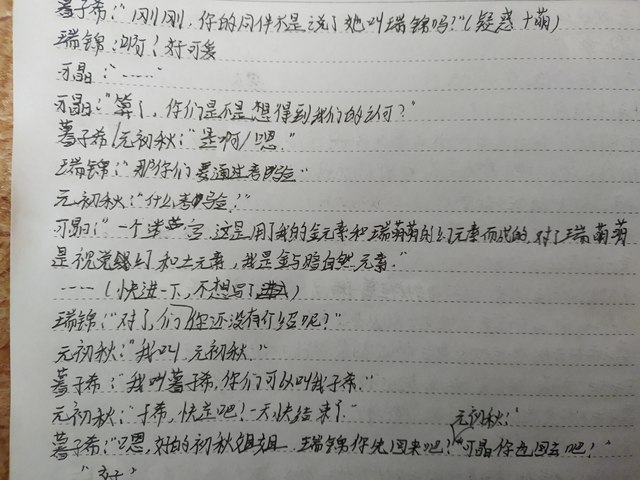 蓦子希:"刚刚,你的同伴不是说了她叫瑞锦吗?"(疑惑+萌)
瑞锦:啊!好可爱
可晶:"……"
可晶:"算了,你们是不是想得到我们的认何?"
蓦子希/元初秋:"是啊/嗯."
瑞锦:"那你们要通过考验"
元初秋:"什么考验?"
可晶:"一个迷宫,这是用了我的金元素和瑞萌萌的幻元素而成的,对了瑞萌萌
是视觉幻和土元素,我是金与暗自然元素."
……(快进一下,不想写了)
瑞锦:"对了,们你还没有介绍呢?"
元初秋:"我叫 元初秋."
蓦子希:"我叫蓦子希,你们可以叫我子希."
元初秋:"子希,快走吧!一天快结束了"
元初秋:"
蓦子希:"嗯,好的初秋姐姐 瑞锦你先回来吧!"可晶你也回去吧!"
"好"